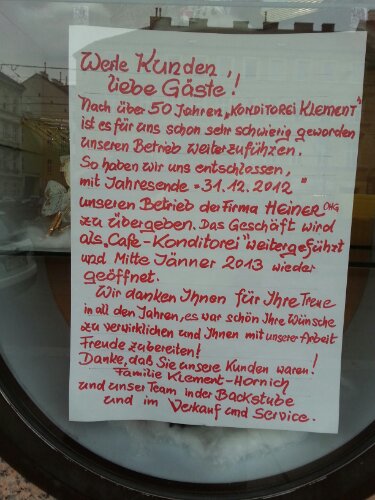 Werte Kunden,
liebe Gäste!
Nach über 50 Jahren „KONDITOREI KLEMENT"
ist es für uns schon sehr schwierig geworden
unseren Betrieb weiterzuführen.
So haben wir uns entschlossen,
mit Jahresende "31.12.2012"
unseren Betrieb der Firma HEINER OHG
zu übergeben. Das Geschäft wird
als „Cafe-Konditorei" weitergeführt
und Mitte Jänner 2013 wieder
geöffnet.
Wir danken Ihnen für Ihre Treue
in all den Jahren, es war schön Ihre Wünsche
zu verwirklichen und Ihnen mit unserer Arbeit
Freude zubereiten!
Danke, daß Sie unsere Kunden waren!
Familie Klement-Hornich
und unser Team in der Backstube
und im Verkauf und Service.